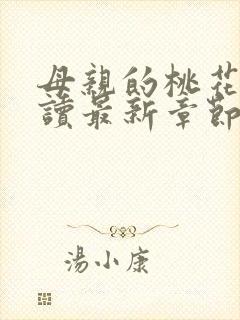 母親的桃花
讀最新章節
湯小康